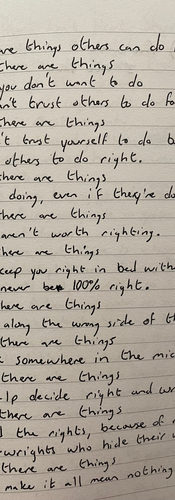 are things others can do
there are things
you don't want to do
n't trust others to do fo
there are things
't trust yourself to do b
others to do right.
there are things
doing, even if they're do
there are things
aren't worth righting.
here are things
keep you right in bed with
never be 100% right.
here are things
along the wrong side of th
there are things
somewhere in the mid
there are things
lp decide right and wr
there are things
the rights, because of
wrights who hide their
there are things
make it all mean nothing